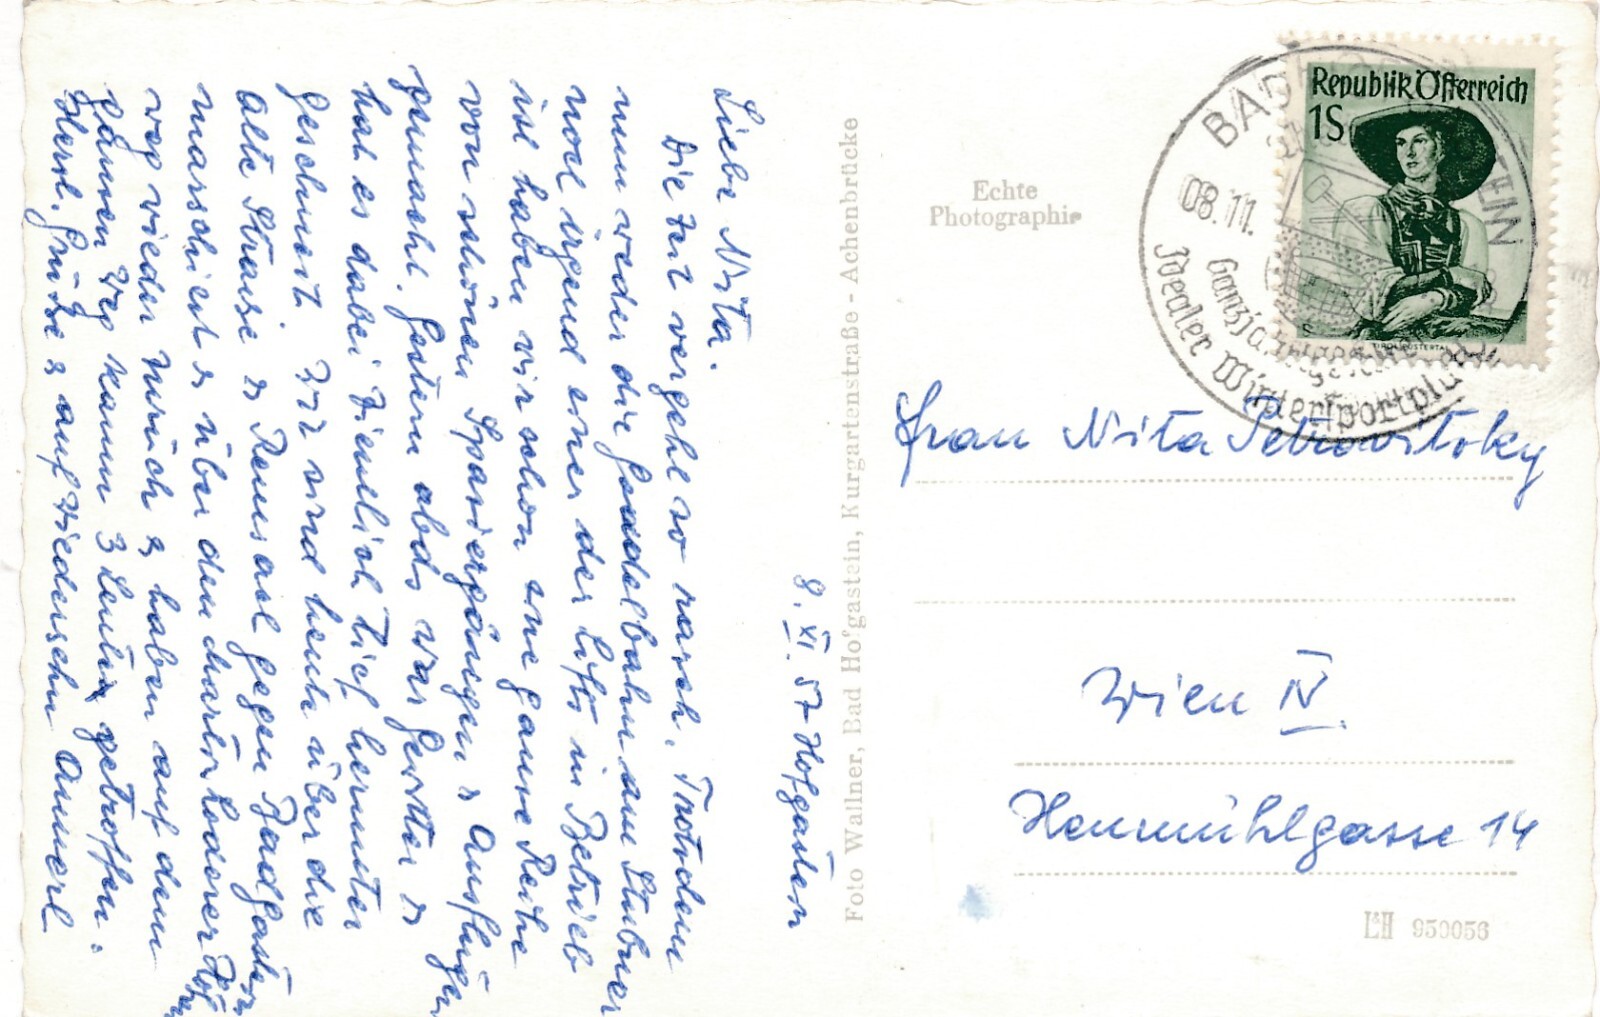 8. XI. 57 Hofgastein
Liebe Nita.
Die Zeit vergeht so rasch. Trotzdem
nun weder die Gondelbahn am Stubner
noch irgend einer der Lifts in Betrieb
ist haben wir schon eine ganze Reihe
von schönen Spaziergängen & Ausflügen
gemacht. Gestern abds war Gewitter &
hat es dabei ziemlich tief herunter
geschneit. Wir sind heute über die
alte Strasse & Remsach gegen Badgastein
marschiert & über den
weg wieder zurück & haben auf dem
ganzen Weg kaum 3 Leute getroffen.
Herzl. Grüße & auf Wiedersehn Annerl
Foto Wallner, Bad Hofgastein, Kurgartenstraße - Achenbrücke
Echte
Photographie
Republik Österreich
1S
BAD
08.11.
Idealer Wintersportplatz
Frau Nita
Wien IV.
Heumühlgasse 14
L&H 950056